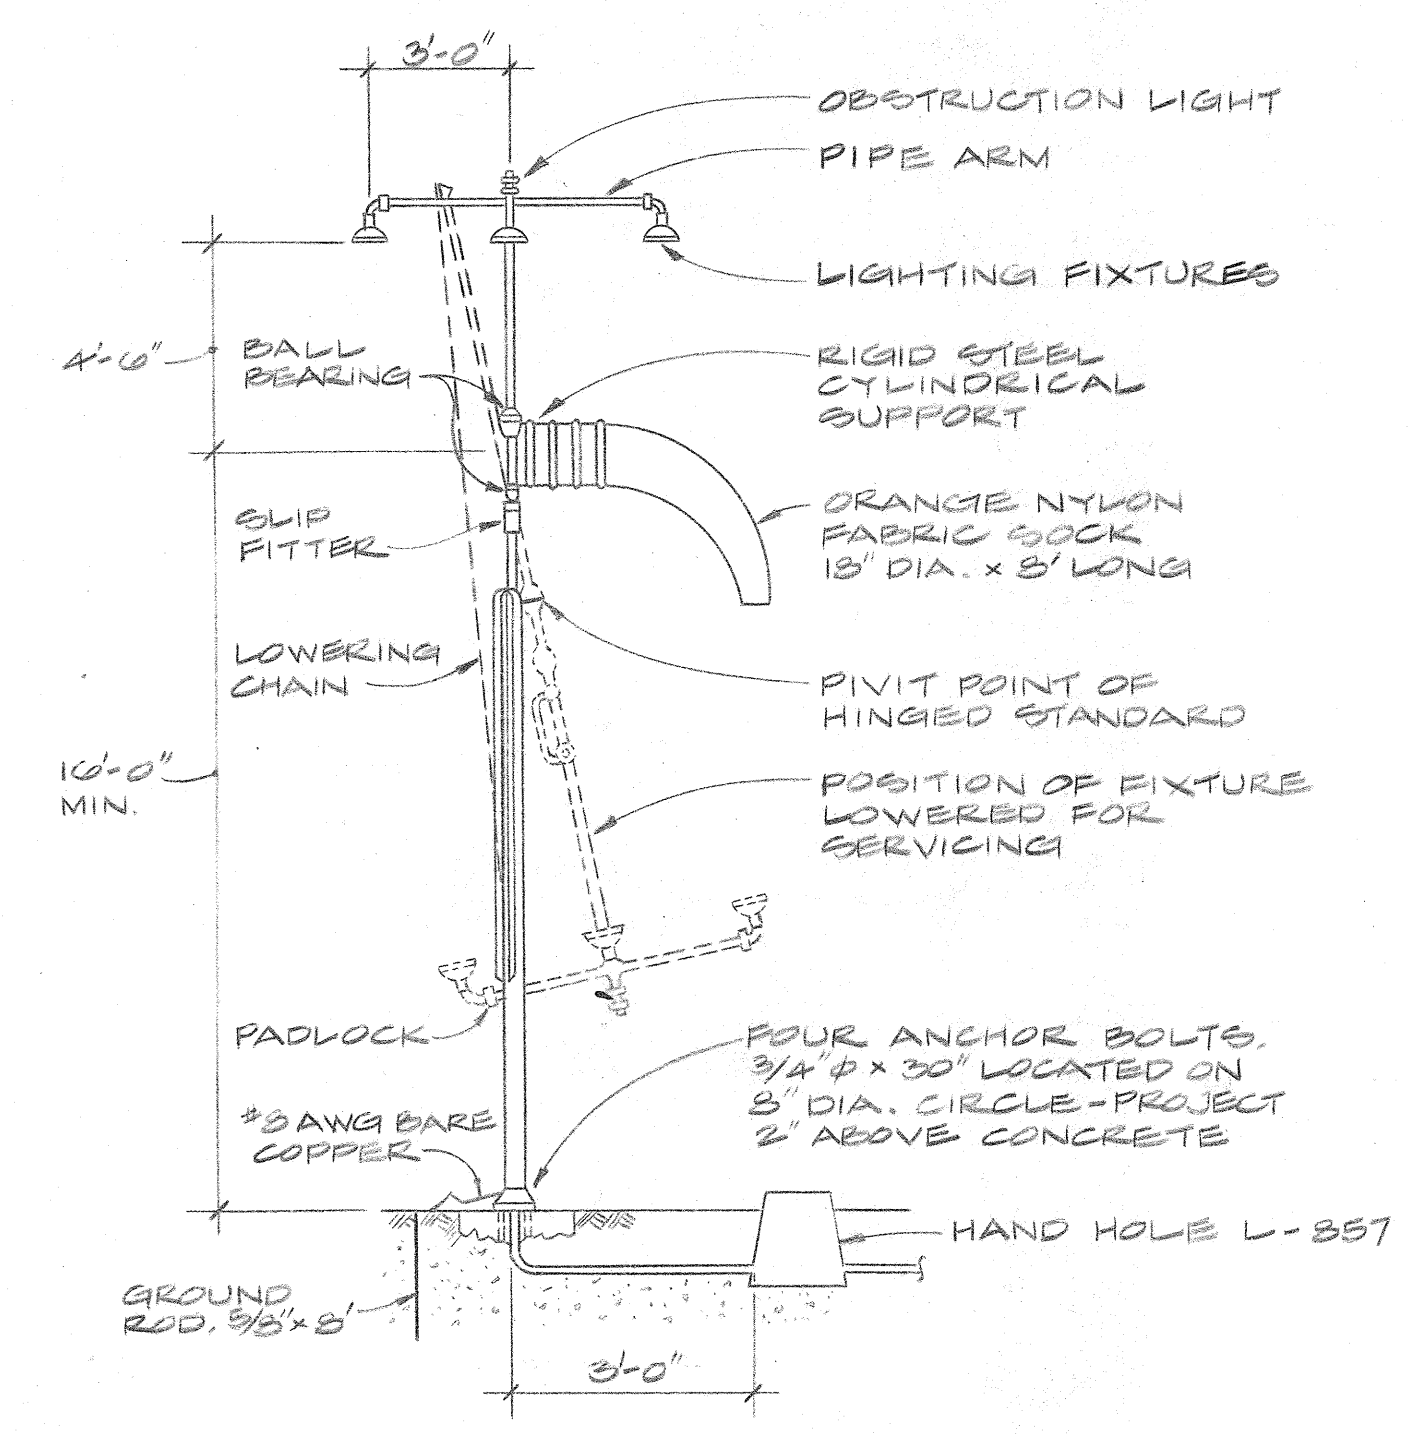 3'-0"
OBSTRUCTION LIGHT
PIPE ARM
LIGHTING FIXTURES
4'-6"
BALL
BEARING
RIGID STEEL
CYLINDRICAL
SUPPORT
SLIP
FITTER
ORANGE NYLON
FABRIC SOCK
18" DIA. x 8' LONG
LOWERING
CHAIN
PIVIT POINT OF
HINGED STANDARD
16'-0"
MIN.
POSITION OF FIXTURE
LOWERED FOR
SERVICING
PADLOCK
FOUR ANCHOR BOLTS.
3/4"φ x 30" LOCATED ON
8" DIA. CIRCLE-PROJECT
2" ABOVE CONCRETE
#8 AWG BARE
COPPER
HAND HOLE L-857
GROUND
ROD. 5/8" x 8'
3'-0"